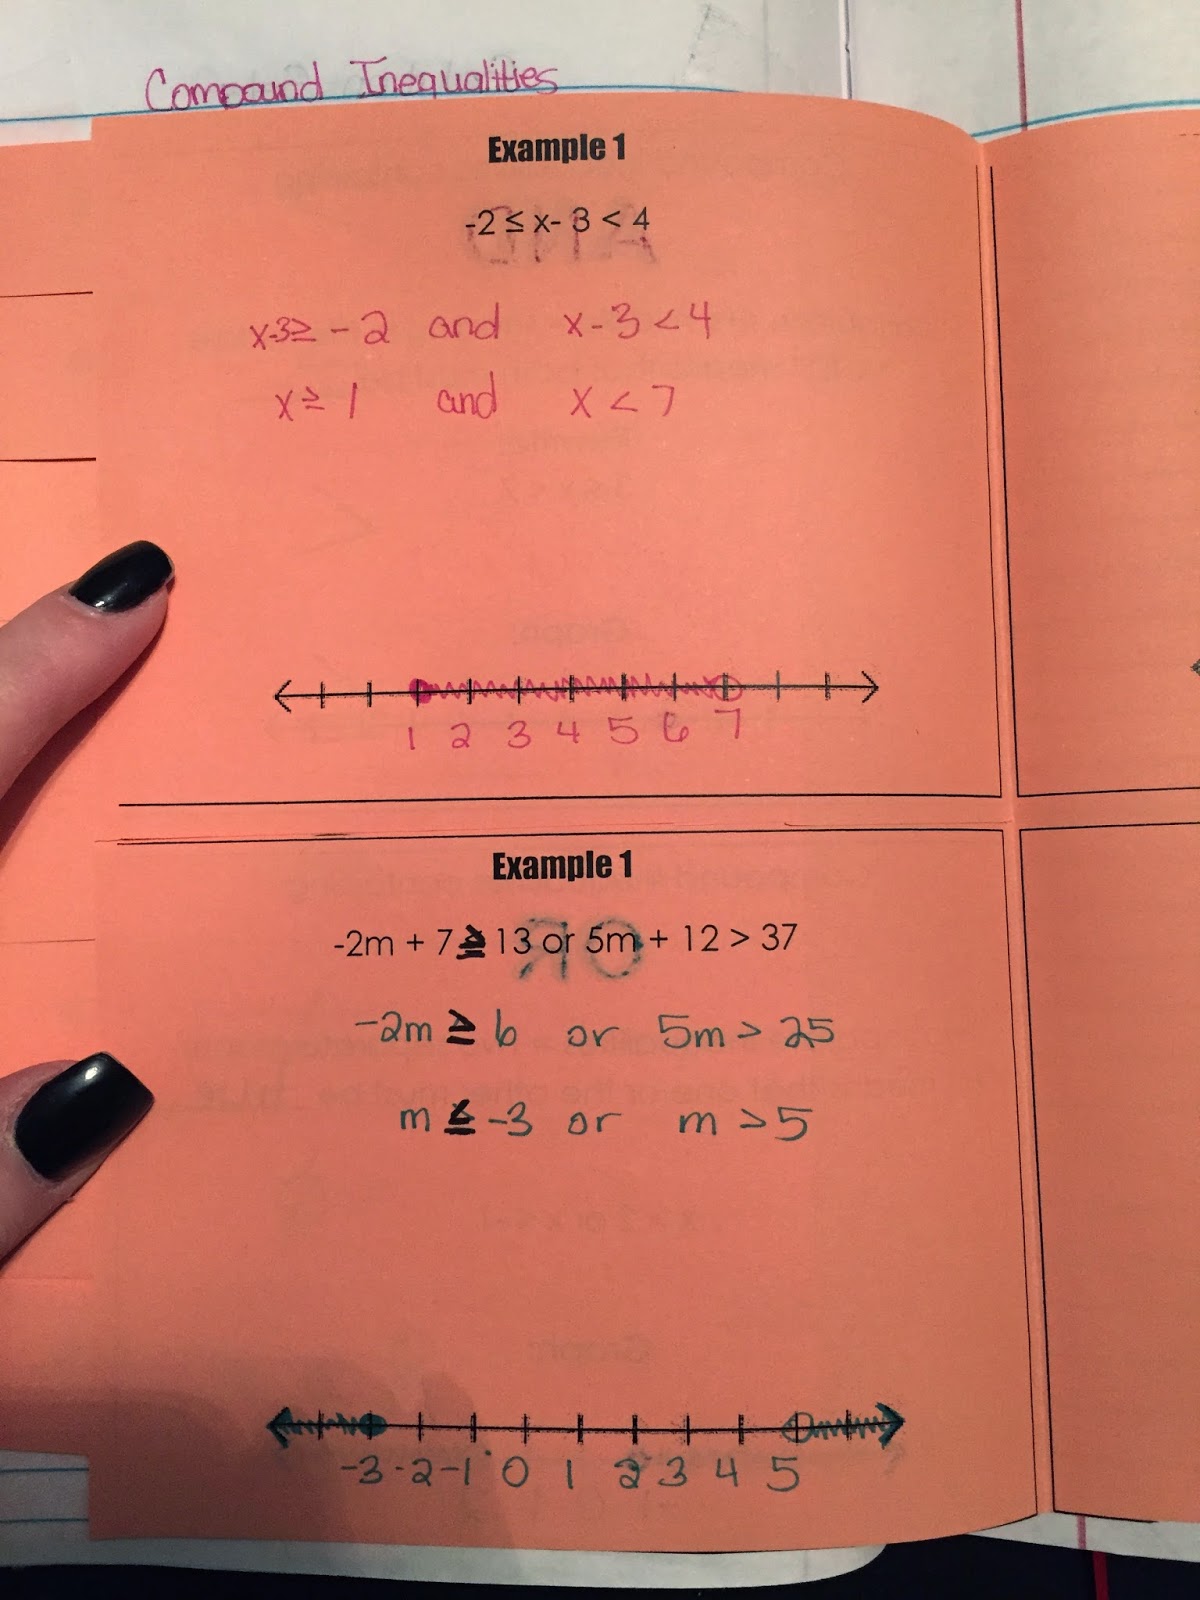 Compound Inequalities
Example 1
-2 ≤ x- 3 < 4
x-3≥ -2 and x-3<4
x≥1 and x<7
1 2 3 4 5 6 7
Example 1
-2m + 7 ≥ 13 or 5m + 12 > 37
-2m ≥ 6 or 5m > 25
m ≤ -3 or m >5
-3 -2 -1 0 1 2 3 4 5